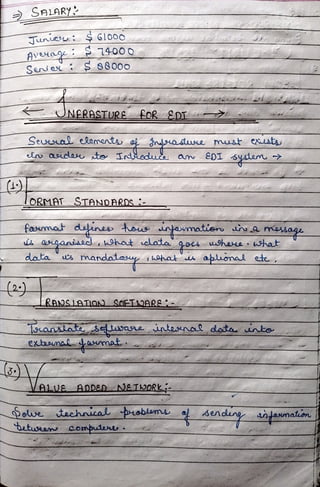 ⇒ SALARY:-
Junior: $ 61000
Average: $ 74000
Senior: $ 88000
← INFRASTURE FOR EDI →
Several elements of Infrasture must exists
in order to Introduce an EDI system →
(1.) FORMAT STANDARDS:-
Format defines how information in a message
is organised, what data goes where. what
data is mandatory, what is optional etc.
(2.) TRANSLATION SOFTWARE:-
Translate software internal data into
external format.
(3.) VALUE ADDED NETWORK:-
Solve technical problems of sending information
between computers.